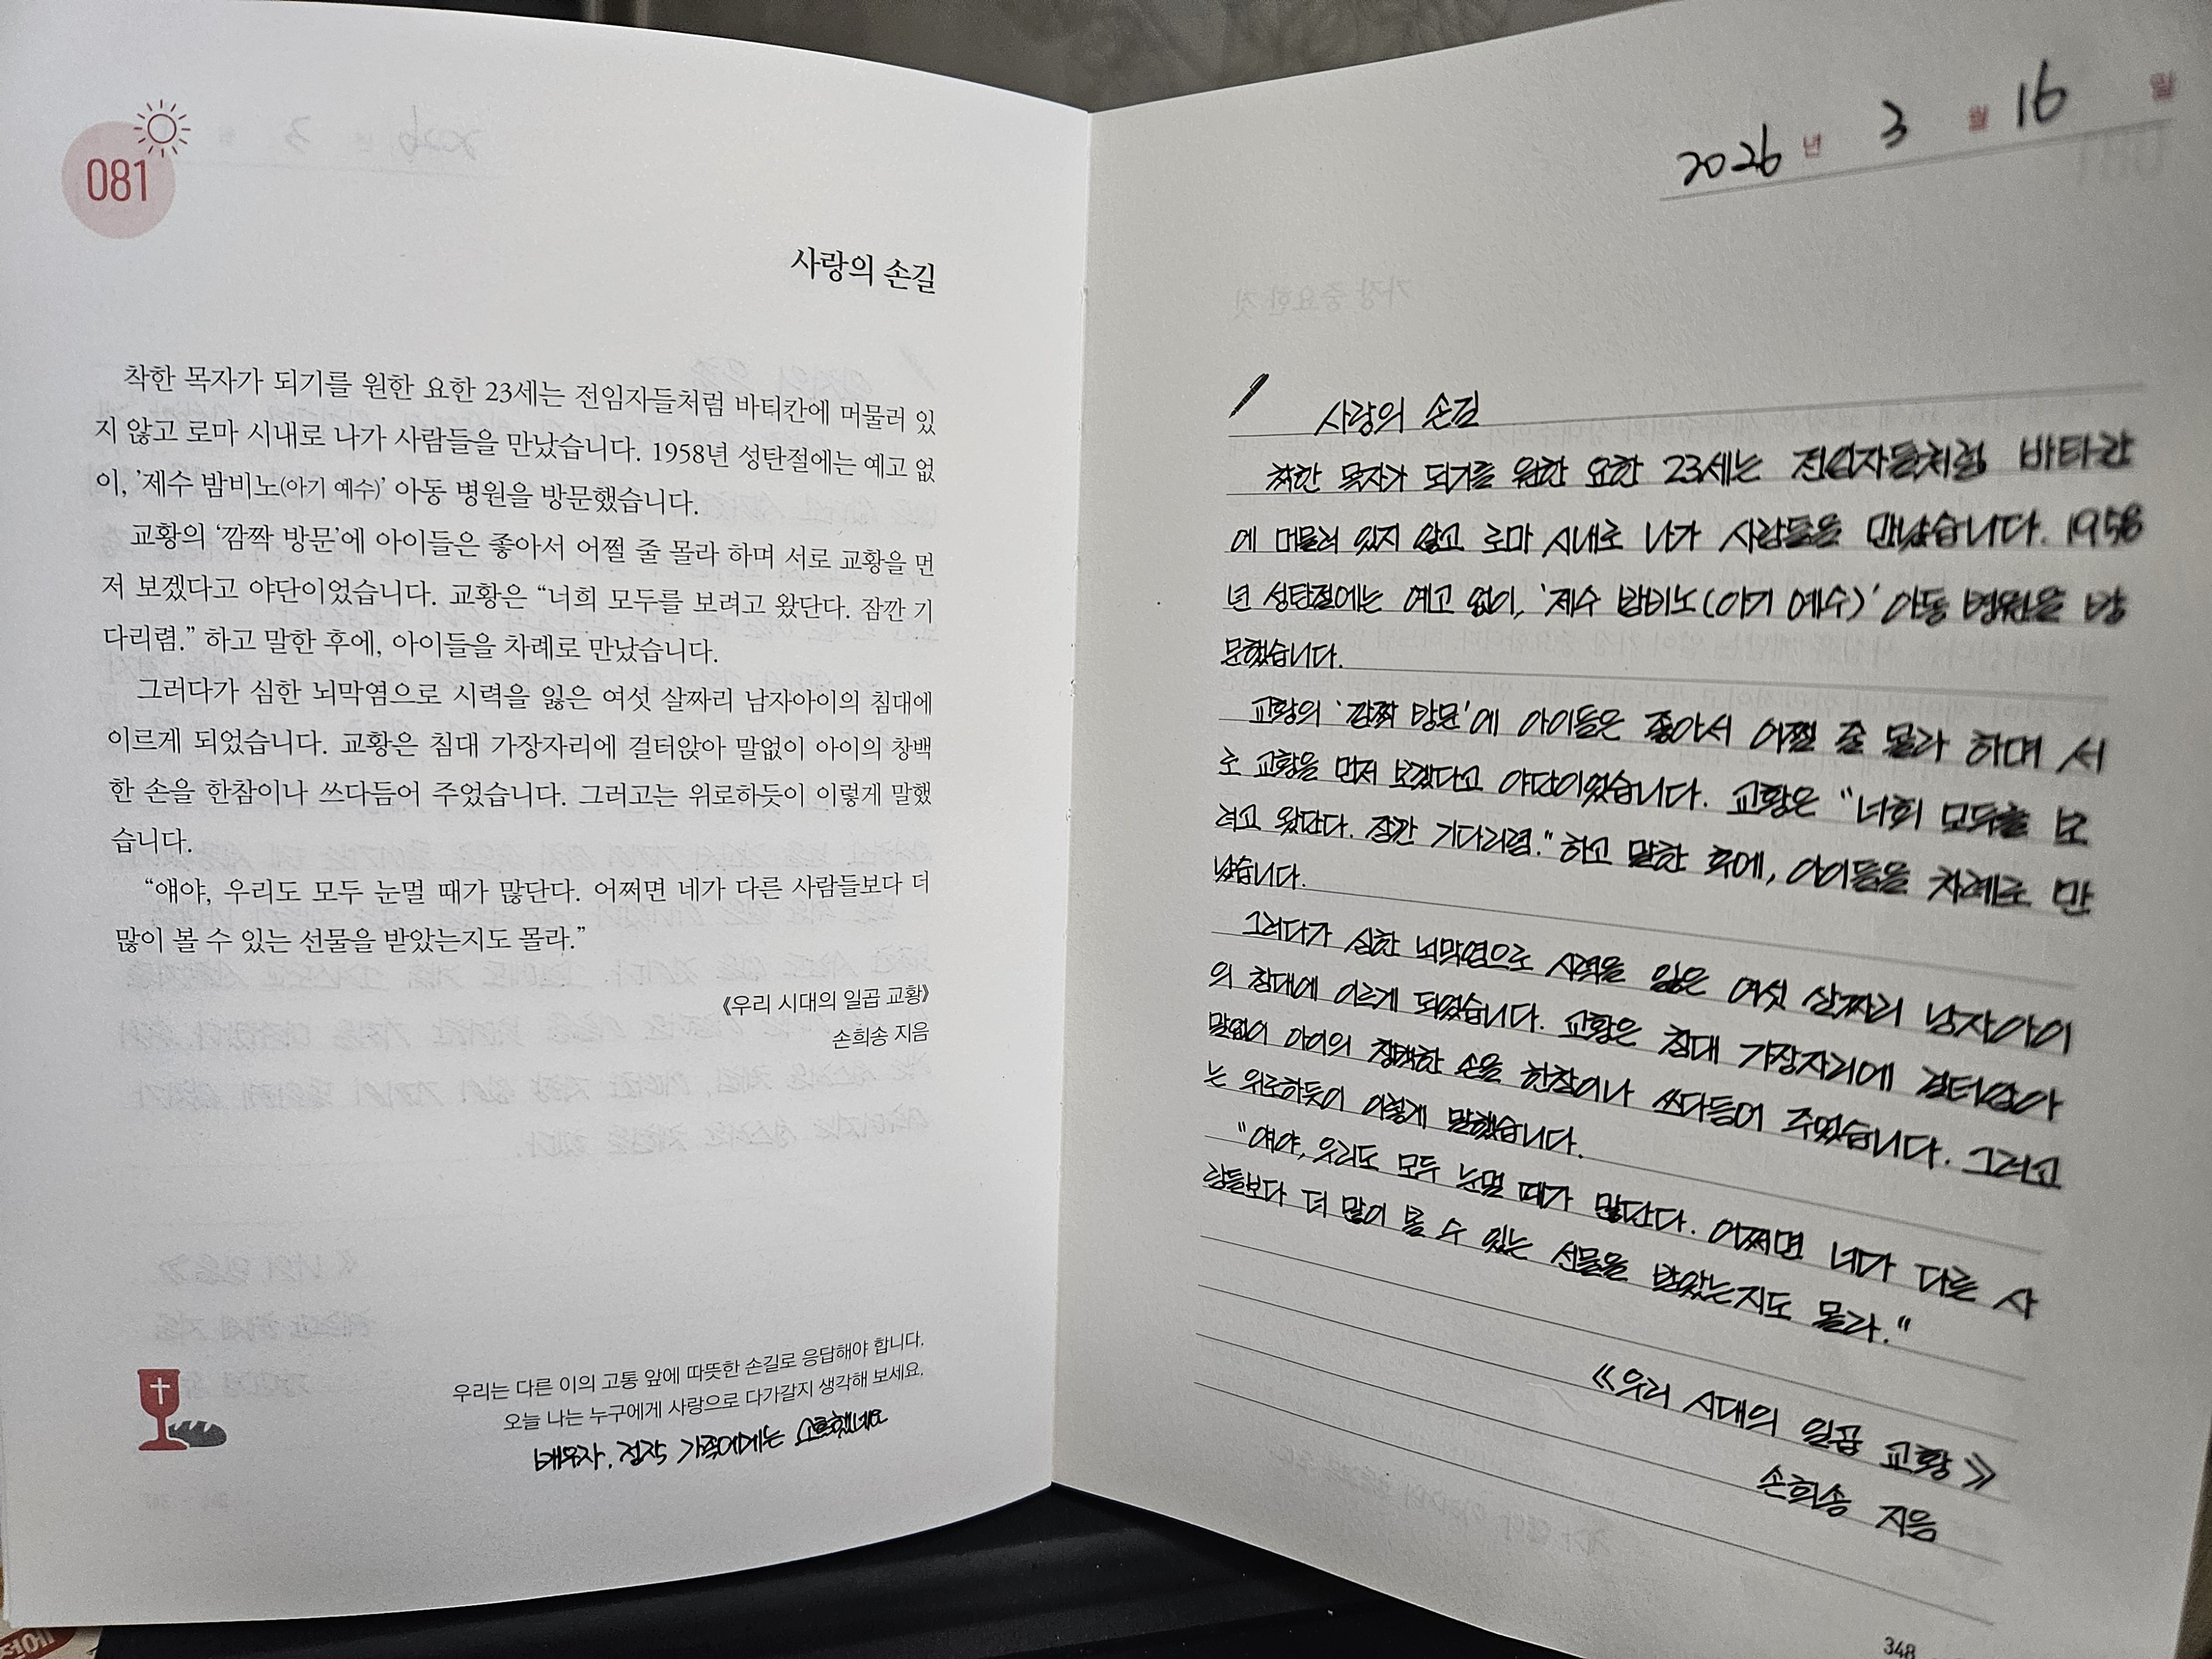 081
사랑의 손길
착한 목자가 되기를 원한 요한 23세는 전임자들처럼 바티칸에 머물러 있
지 않고 로마 시내로 나가 사람들을 만났습니다. 1958년 성탄절에는 예고 없
이, '제수 밤비노(아기 예수)' 아동 병원을 방문했습니다.
교황의 '깜짝 방문'에 아이들은 좋아서 어쩔 줄 몰라 하며 서로 교황을 먼
저 보겠다고 야단이었습니다. 교황은 “너희 모두를 보려고 왔단다. 잠깐 기
다리렴.” 하고 말한 후에, 아이들을 차례로 만났습니다.
그러다가 심한 뇌막염으로 시력을 잃은 여섯 살짜리 남자아이의 침대에
이르게 되었습니다. 교황은 침대 가장자리에 걸터앉아 말없이 아이의 창백
한 손을 한참이나 쓰다듬어 주었습니다. 그러고는 위로하듯이 이렇게 말했
습니다.
“얘야, 우리도 모두 눈멀 때가 많단다. 어쩌면 네가 다른 사람들보다 더
많이 볼 수 있는 선물을 받았는지도 몰라.”
《우리 시대의 일곱 교황》
손희송 지음
우리는 다른 이의 고통 앞에 따뜻한 손길로 응답해야 합니다.
오늘 나는 누구에게 사랑으로 다가갈지 생각해 보세요.
배우자. 정작 가족에게는 소홀했네요
2026 년 3 월 16 일
사랑의 손길
착한 목자가 되기를 원한 요한 23세는 전임자들처럼 바티칸
에 머물러 있지 않고 로마 시내로 나가 사람들을 만났습니다. 1958
년 성탄절에는 예고 없이, '제수 밤비노(아기 예수)' 아동 병원을 방
문했습니다.
교황의 '깜짝 방문'에 아이들은 좋아서 어쩔 줄 몰라 하며 서
로 교황을 먼저 보겠다고 야단이었습니다. 교황은 “너희 모두를 보
려고 왔단다. 잠깐 기다리렴.” 하고 말한 후에, 아이들을 차례로 만
났습니다.
그러다가 심한 뇌막염으로 시력을 잃은 여섯 살짜리 남자아이
의 침대에 이르게 되었습니다. 교황은 침대 가장자리에 걸터앉아
말없이 아이의 창백한 손을 한참이나 쓰다듬어 주었습니다. 그러고
는 위로하듯이 이렇게 말했습니다.
“얘야, 우리도 모두 눈멀 때가 많단다. 어쩌면 네가 다른 사
람들보다 더 많이 볼 수 있는 선물을 받았는지도 몰라.”
《우리 시대의 일곱 교황》
손희송 지음
348